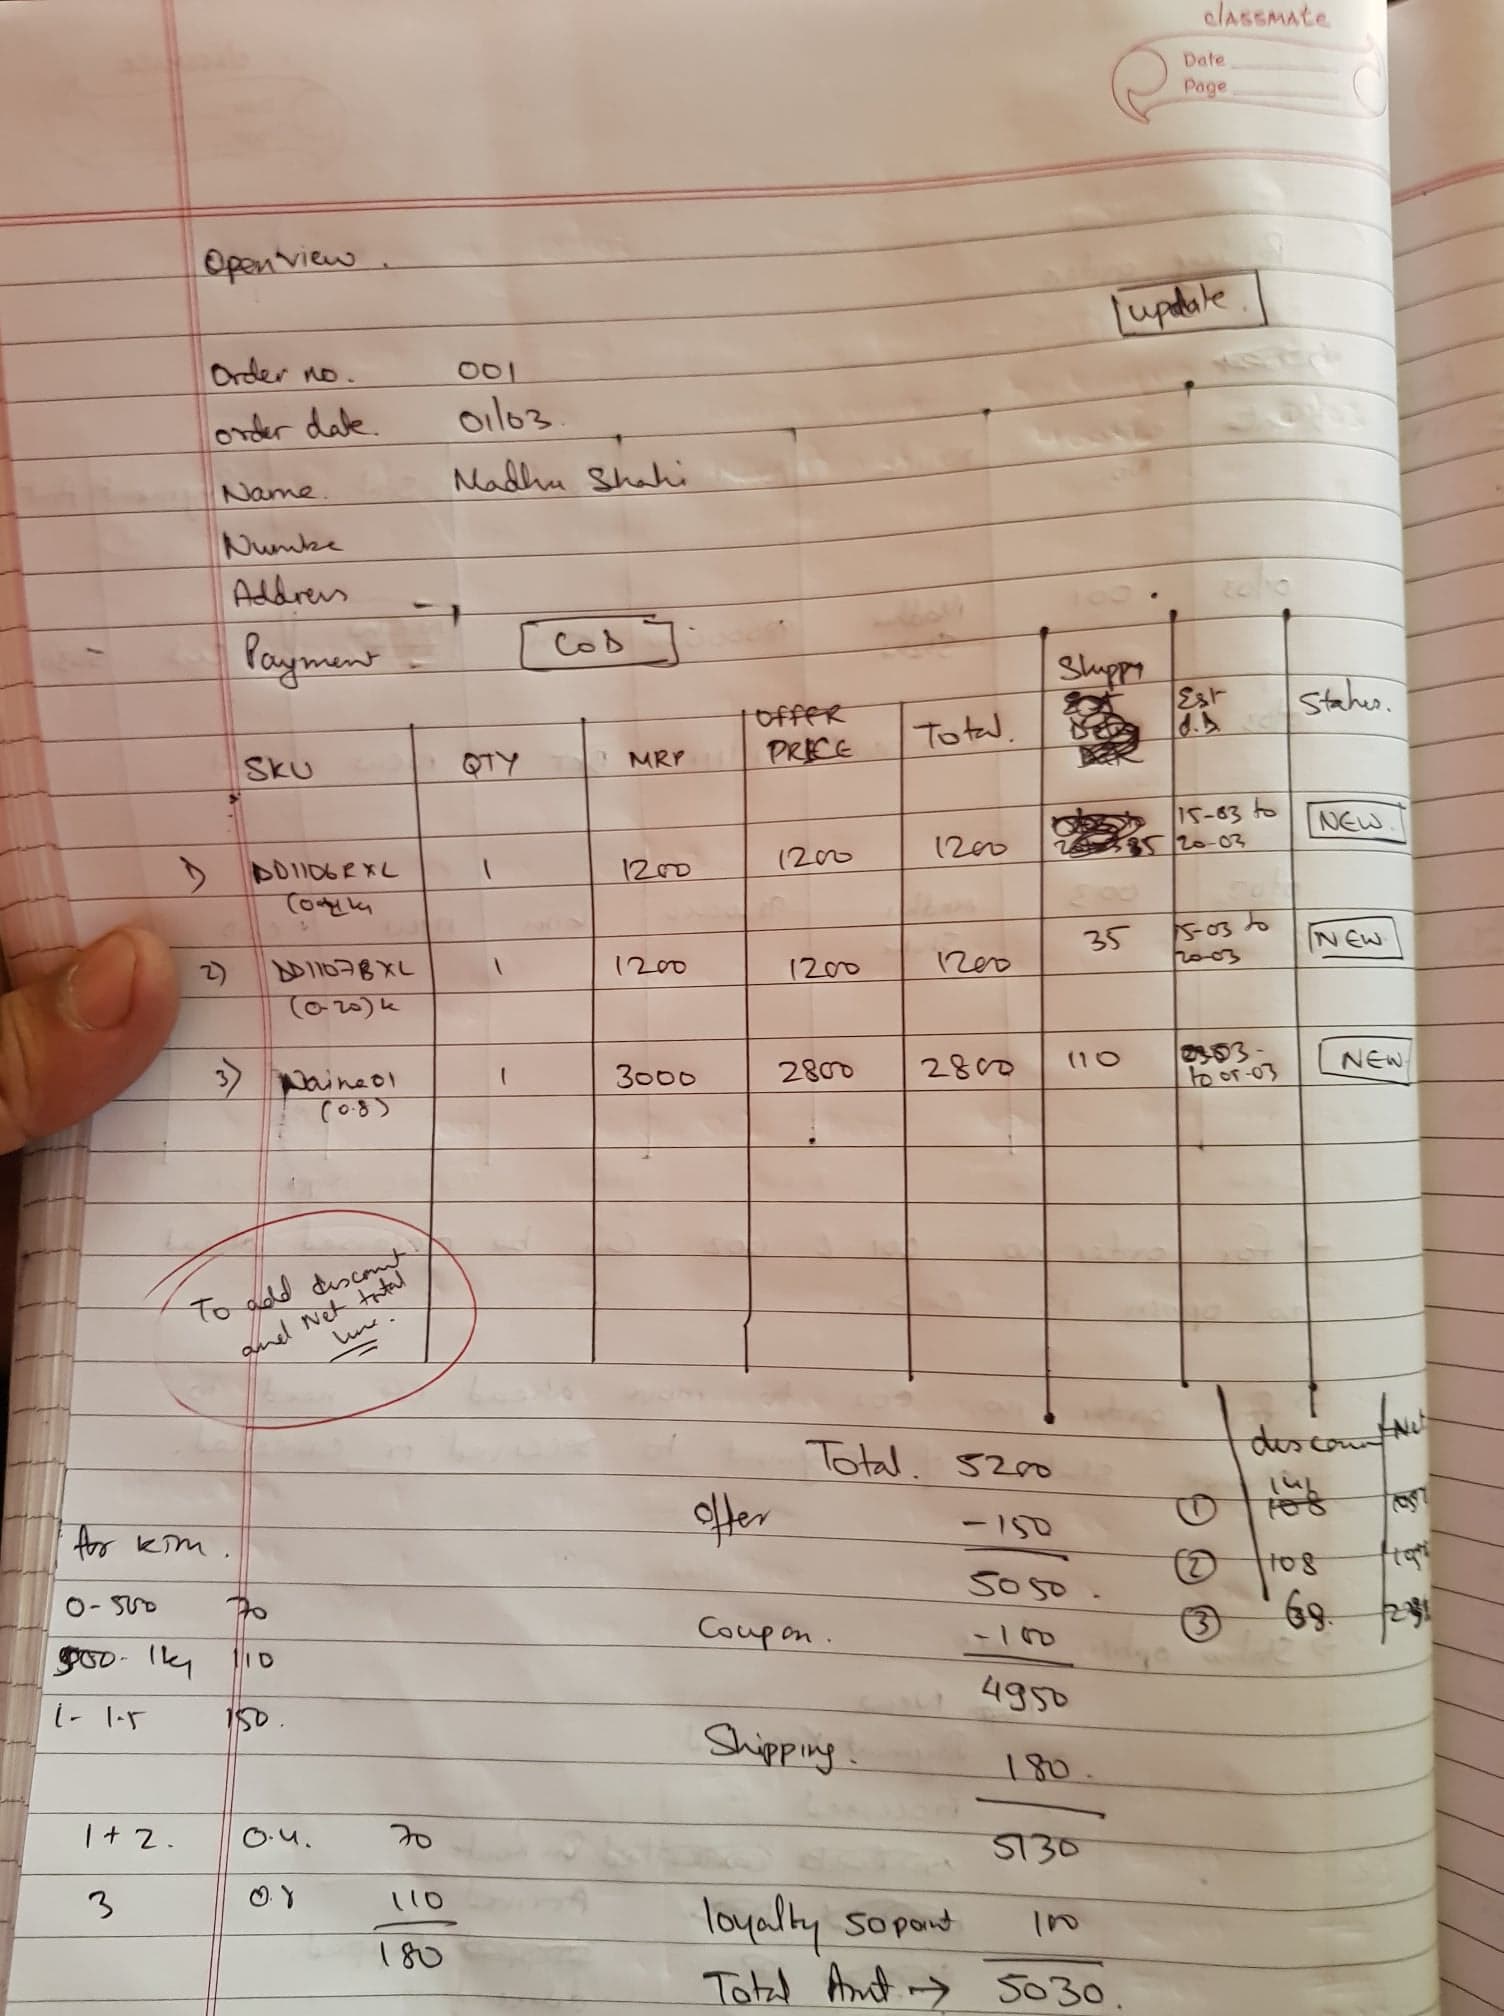 classmate
Date
Page
Open view.
update.
Order no. 001
order date. 01/03.
Name. Madhu Shahi
Numbe
Address
Payment COD
SKU QTY MRP OFFER PRICE Total. Shippy Est d.D Status.
1) DD1106RXL 1 1200 1200 1200 35 15-03 to 20-03 NEW.
2) DD1107BXL 1 1200 1200 1200 35 15-03 to 20-03 NEW
(0.20)k
3) Naine01 1 3000 2800 2800 110 to 05-03 NEW
(0.8)
To add discount
and Net total
line.
Total. 5200 discount Net
Offer -150 ①
5050. ② 108
Coupon. -100 ③ 68.
4950
Shipping. 180.
5130
loyalty 50 point 100
Total Amt → 5030.
for kim.
0-500 70
500-1kg 110
1-1.5 150.
1+2. 0.4. 70
3 0.8 110
180